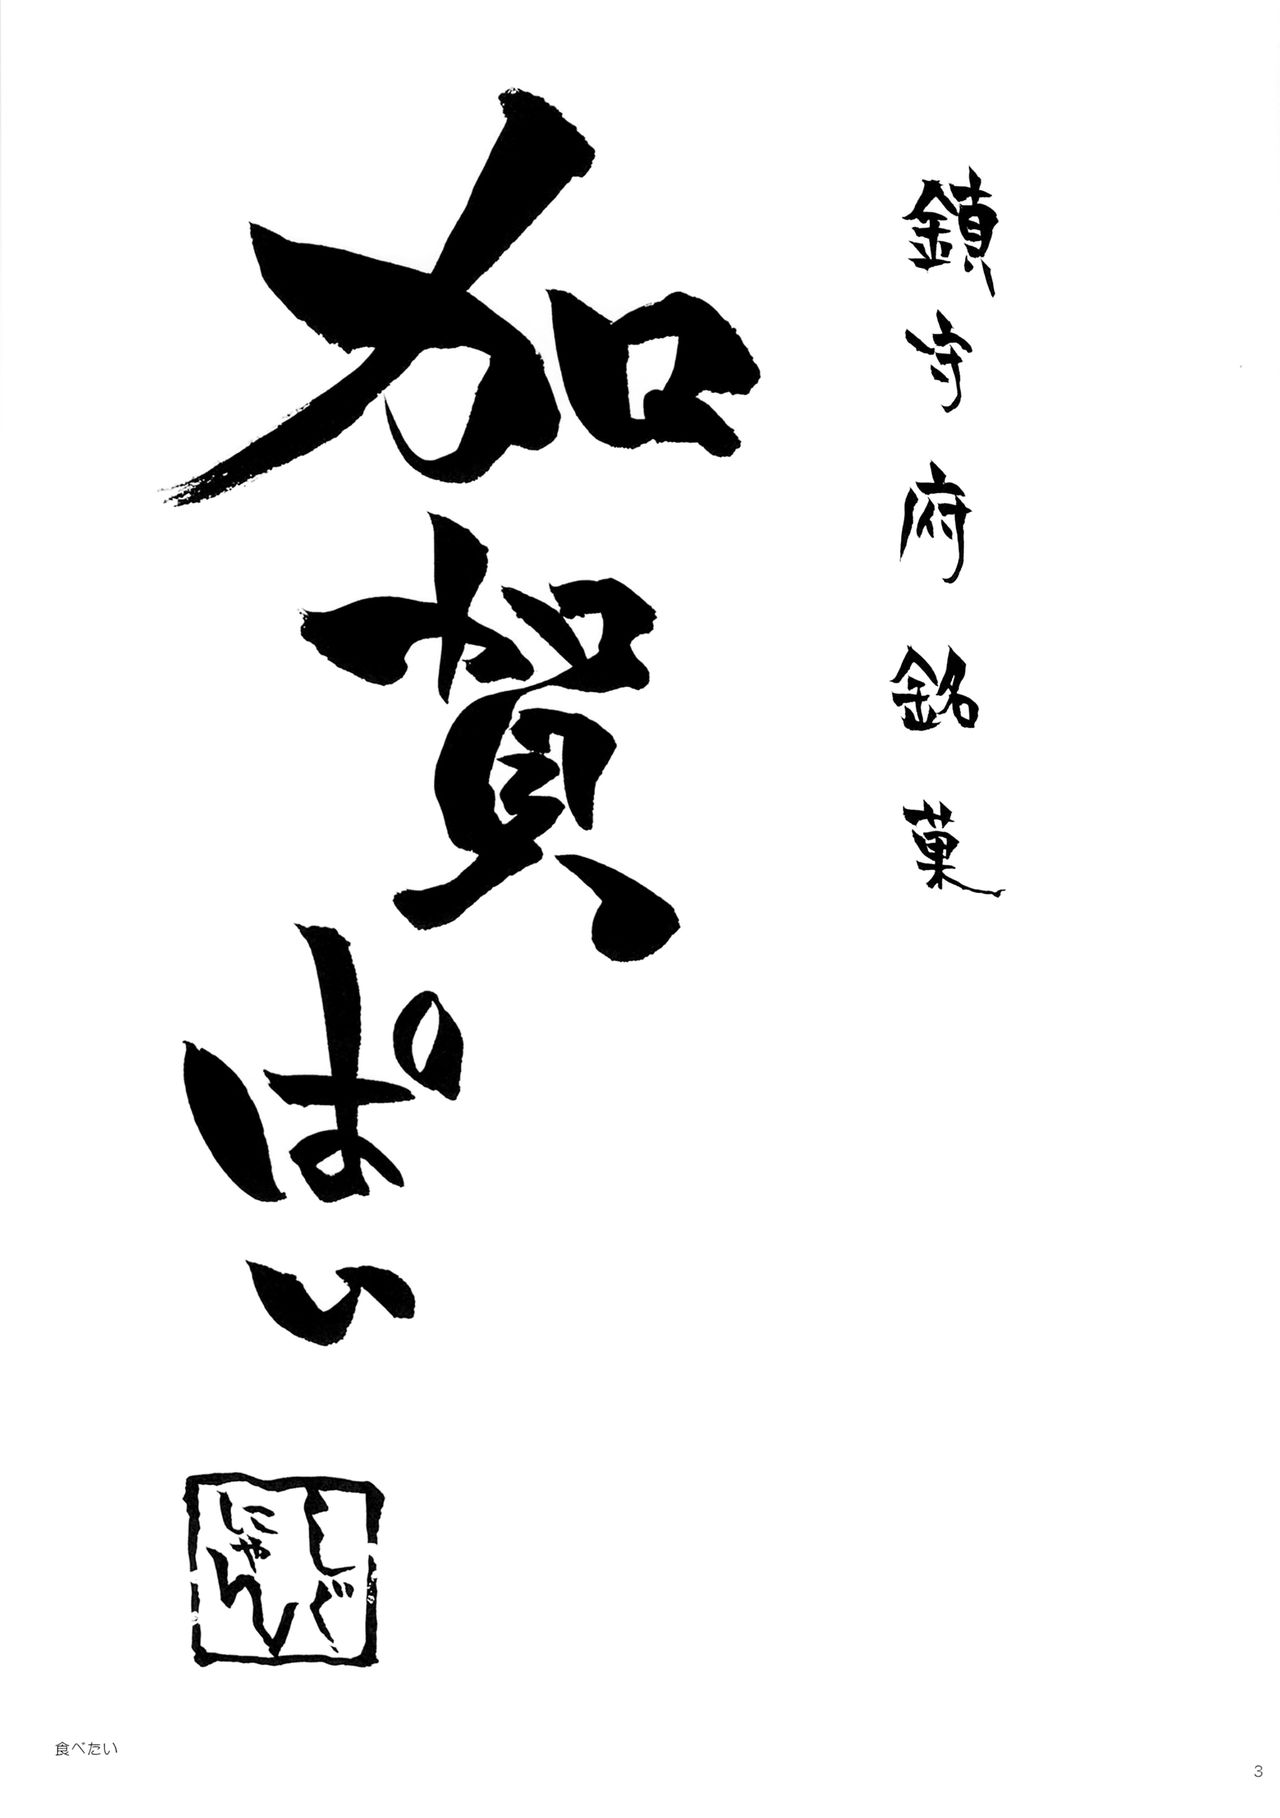 鎮守府銘菓
加賀ぱい
しぐ
にゃん
食べたい
3